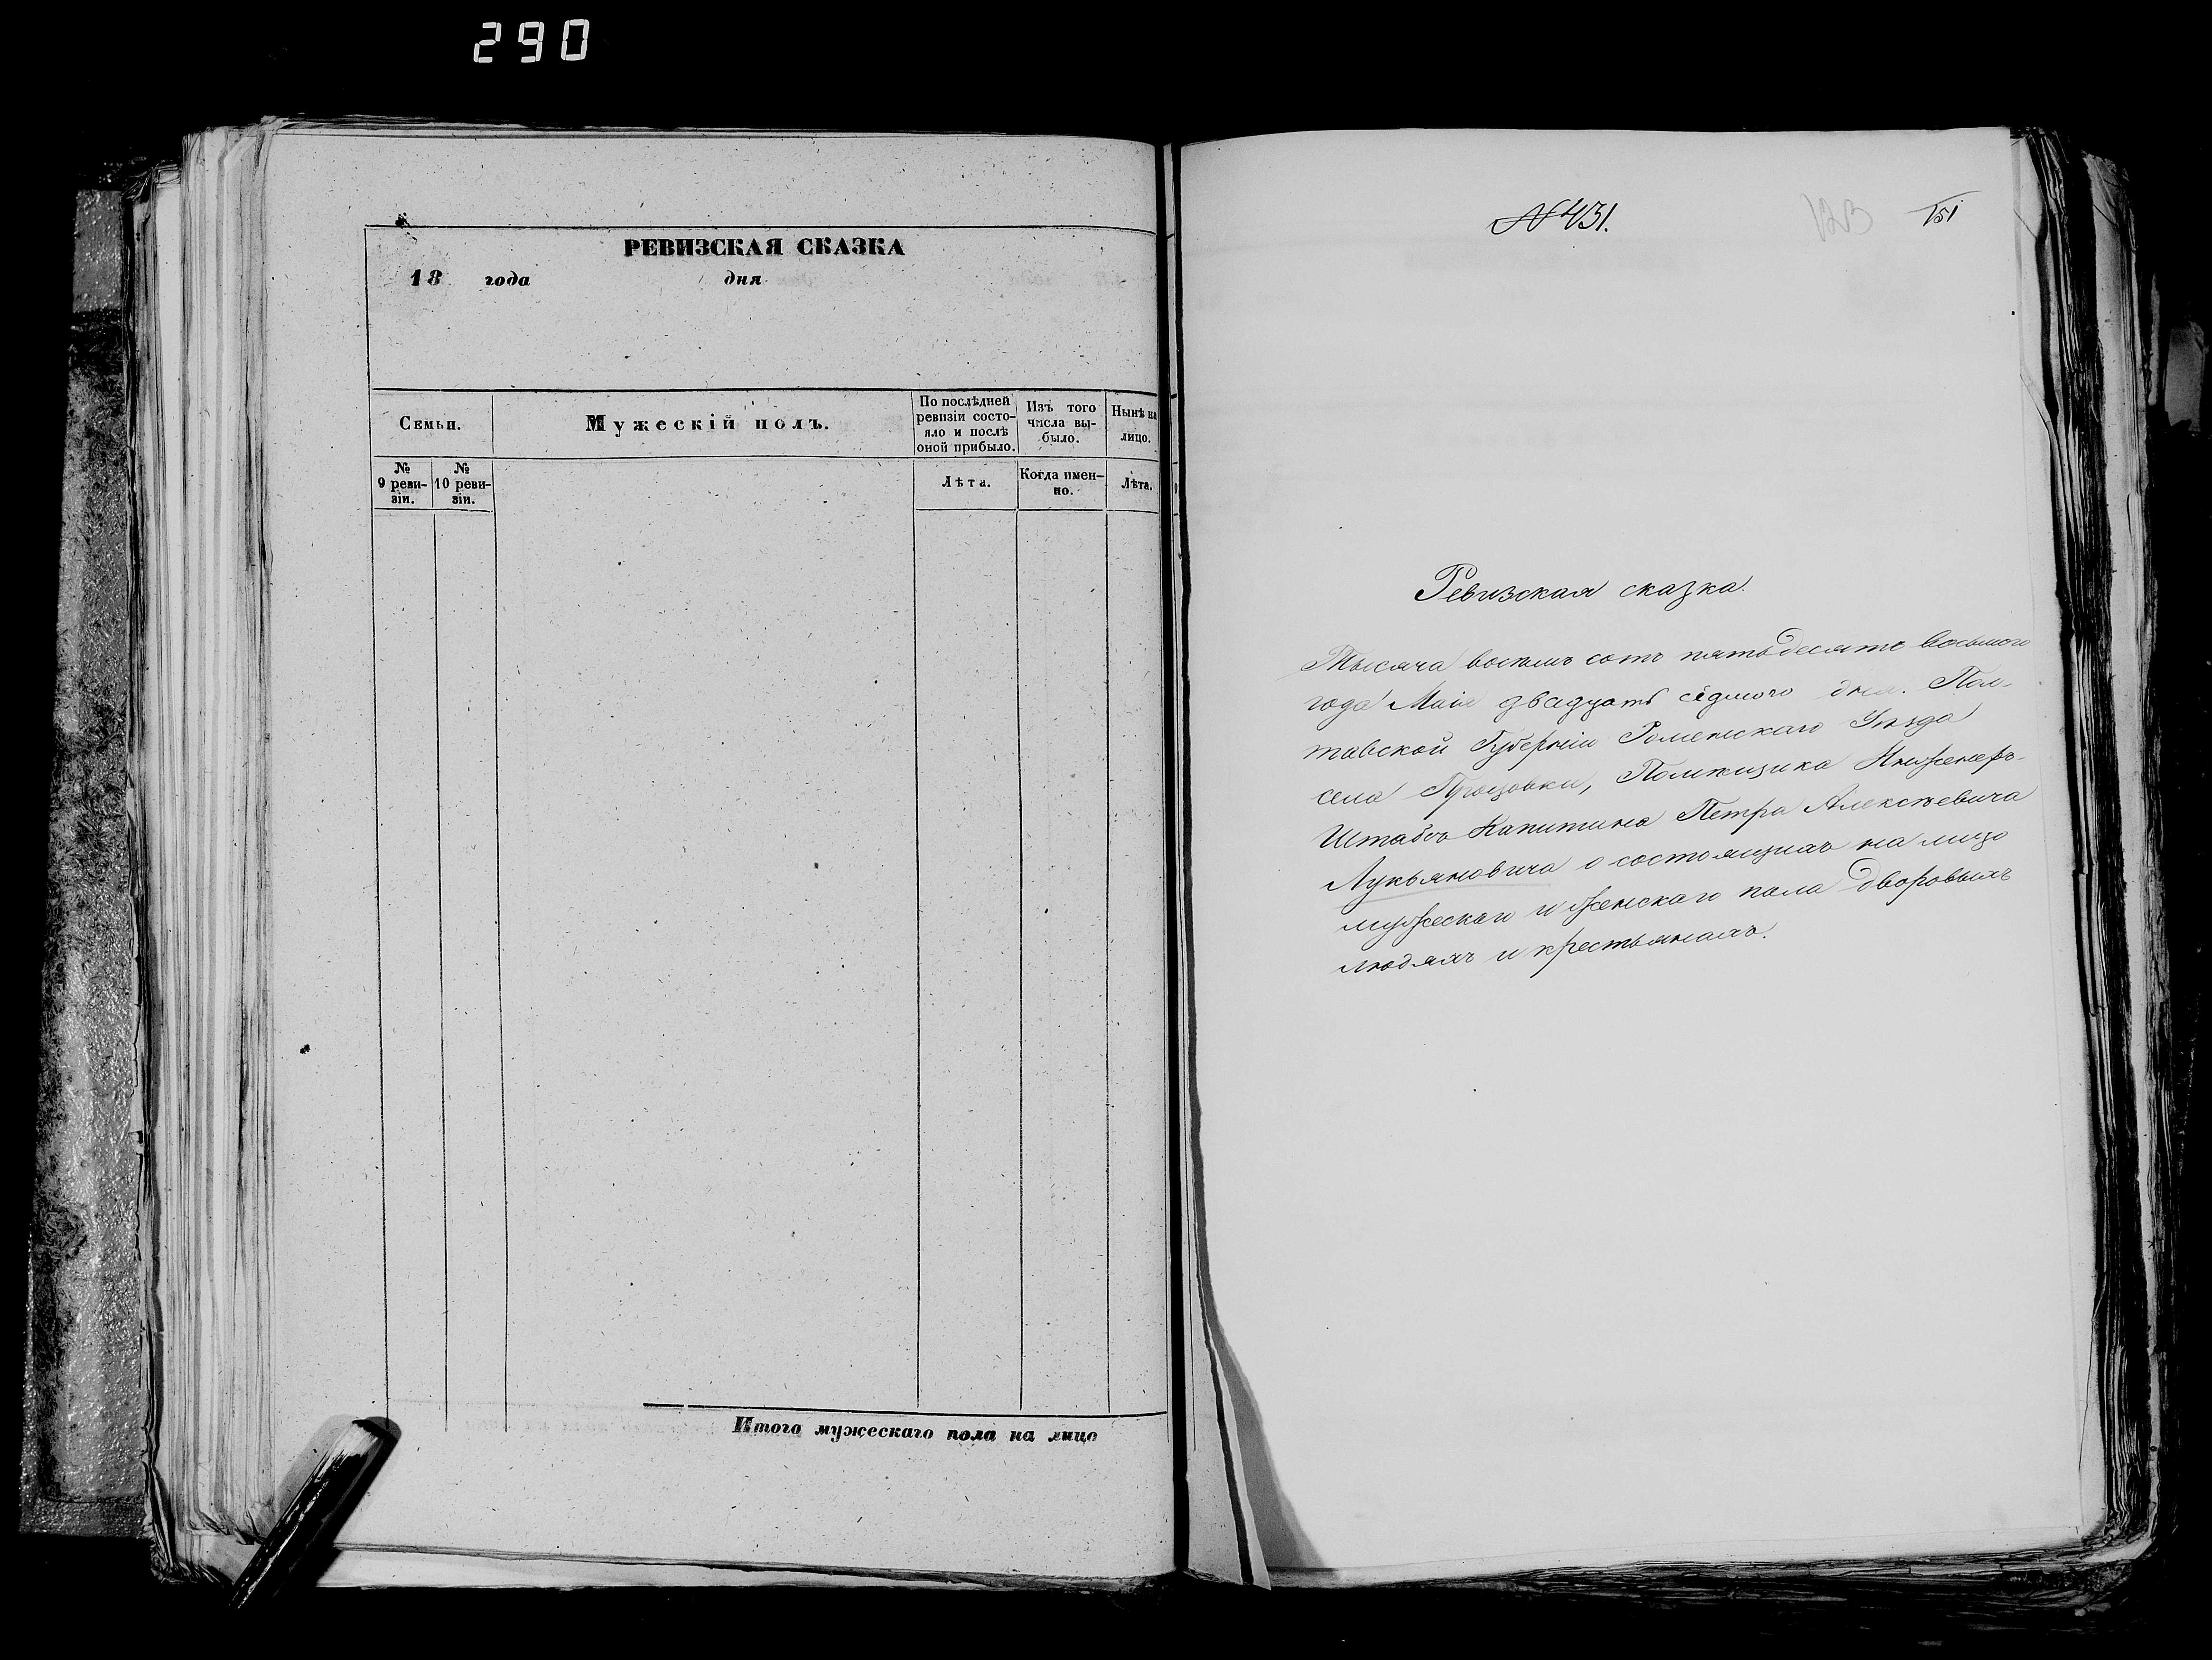 290
РЕВИЗСКАЯ СКАЗКА
18 года дня
Семьи.
Мужескій полъ.
По послѣдней
ревизіи состо-
яло и послѣ
оной прибыло.
Изъ того
числа вы-
было.
Нынѣ на
лицо.
№
9 реви-
зіи.
№
10 реви-
зіи.
Лѣта.
Когда имен-
но.
Лѣта.
Итого мужескаго пола на лицо
№ 431.
151
Ревизская сказка.
Тысяча восемь сотъ пятьдесятъ восьмого
года Маія двадцать седмого дня. Пол-
тавской Губерніи Роменскаго Уѣзда
села Помѣщика Инженеръ-
Штабсъ Капитана Петра Алексѣевича
Лукьяновича о состоящихъ на лицо
мужескаго и женскаго пола дворовыхъ
людяхъ и крестьянахъ.